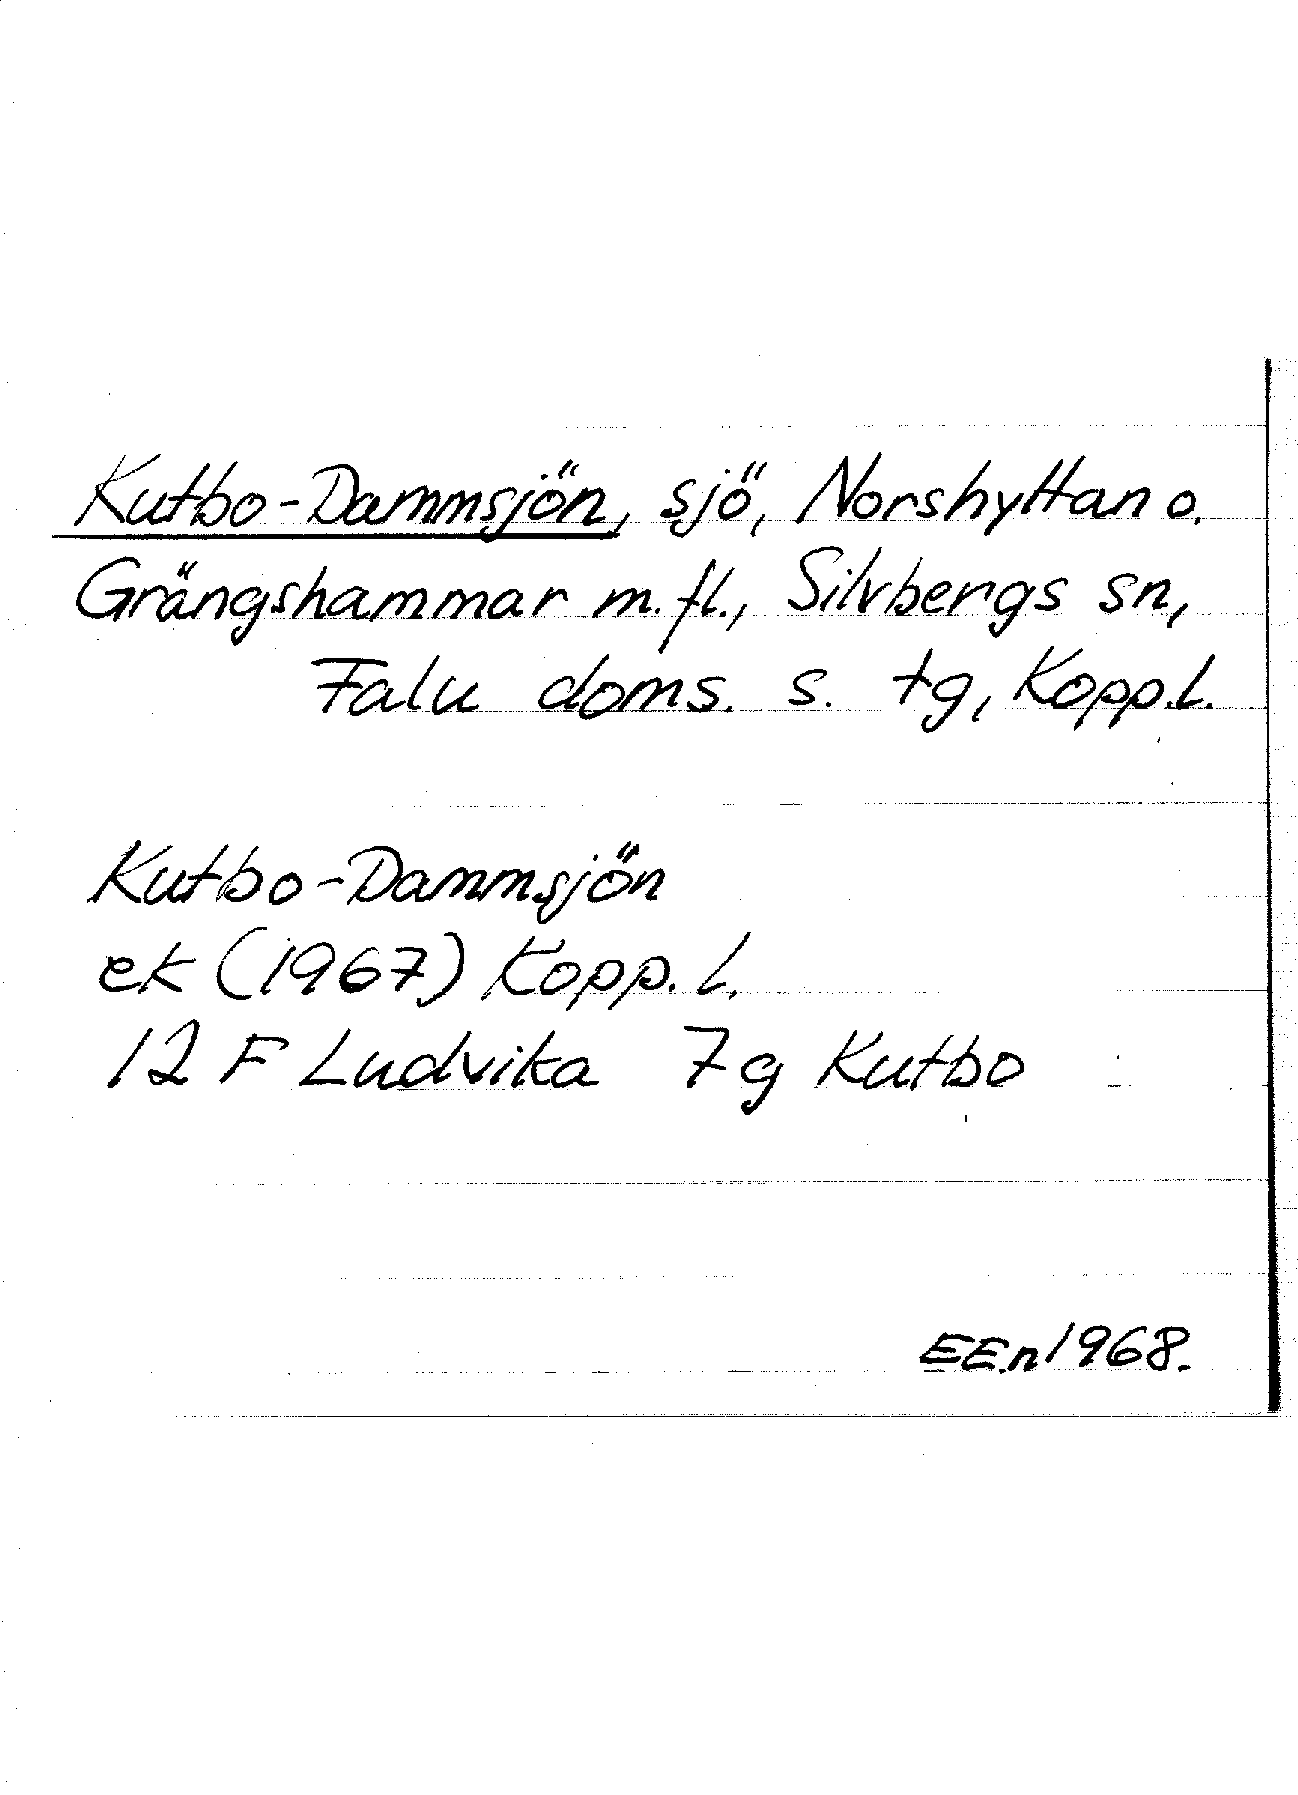 Kutbo-Dammsjön, sjö, Norshyttan o.
Grängshammar m.fl., Silvbergs sn,
Falu doms. s. tg, Kopp.l.
Kutbo-Dammsjön
ek (1967) Kopp. l.
12 F Ludvika 7g Kutbo
EEn 1968.